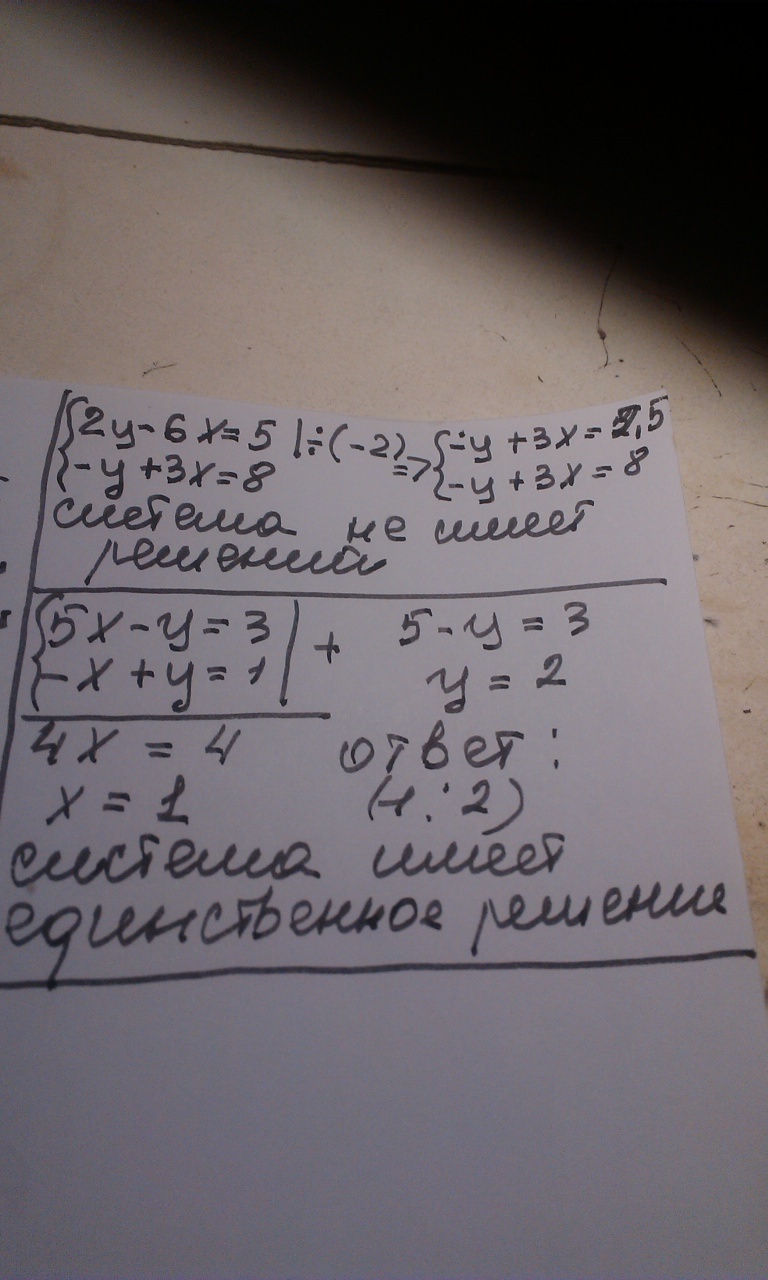 {2y-6x=5 |÷(-2) => {-y+3x=2,5
{-y+3x=8 {-y+3x=8
система не имеет
решений
{5x-y=3 | + 5-y=3
{-x+y=1 | y=2
4x=4 ответ:
x=1 (1;2)
система имеет
единственное решение